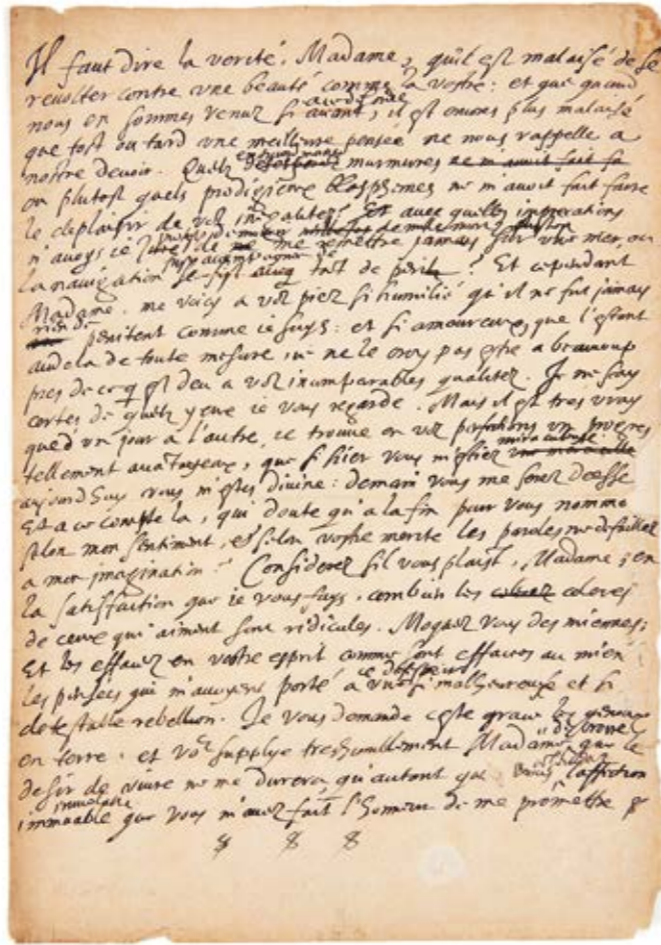 Il faut dire la verité, Madame, qu'il est malaisé de se
revolter contre une beauté comme la vostre: et que quand
nous en sommes venuz si avant, il est encores plus malaisé
que tost ou tard une meilleure pensée ne nous rappelle a
nostre devoir. Quelz murmures ne m'avoit fait fa
ou plutost quels prodigieux blasphemes ne m'avoit fait faire
le deplaisir de voz inegalitez? Et avec quelles imprecations
n'avoys ie de me remettre jamais sur mer, ou
la navigation se fist avec tant de peril? Et cependant
Madame, me voicy a voz piez si humilié qu'il ne fut jamais
rien de penitent comme ie suys: et si amoureux, que l'estant
audela de toute mesure, ie ne le croy pas estre a beaucoup
pres de ce q est deu a voz incomparables qualitez. Je ne sçay
certes de quelz yeux ie vous regarde. Mais il est tres vray
que d'un jour à l'autre, ie trouve en voz perfections un progres
tellement avantageux, que si hier vous m'estiez miraculeuse
aujourd'huy vous m'estes divine: demain vous me serez Deesse
Et a ce compte la, qui doute qu'a la fin pour vous nommer
selon mon sentiment, et selon vostre merite les paroles ne defaillent
a mon imagination? Considerez s'il vous plaist, Madame, en
la satisfaction que ie vous fays, combien les coleres
de ceux qui aiment sont ridicules. Moquez vous des miennes;
Et les effacez en vostre esprit comme sont effacees au mien
les pensées qui m'avoyent porté a une si malheureuse et si
detestable rebellion. Je vous demande ceste grace les genoux
en terre. et vous supplye treshumblement Madame que le
desir de vivre ne me durera, qu'autant que l'affection
immuable que vous m'avez fait l'honneur de me promettre